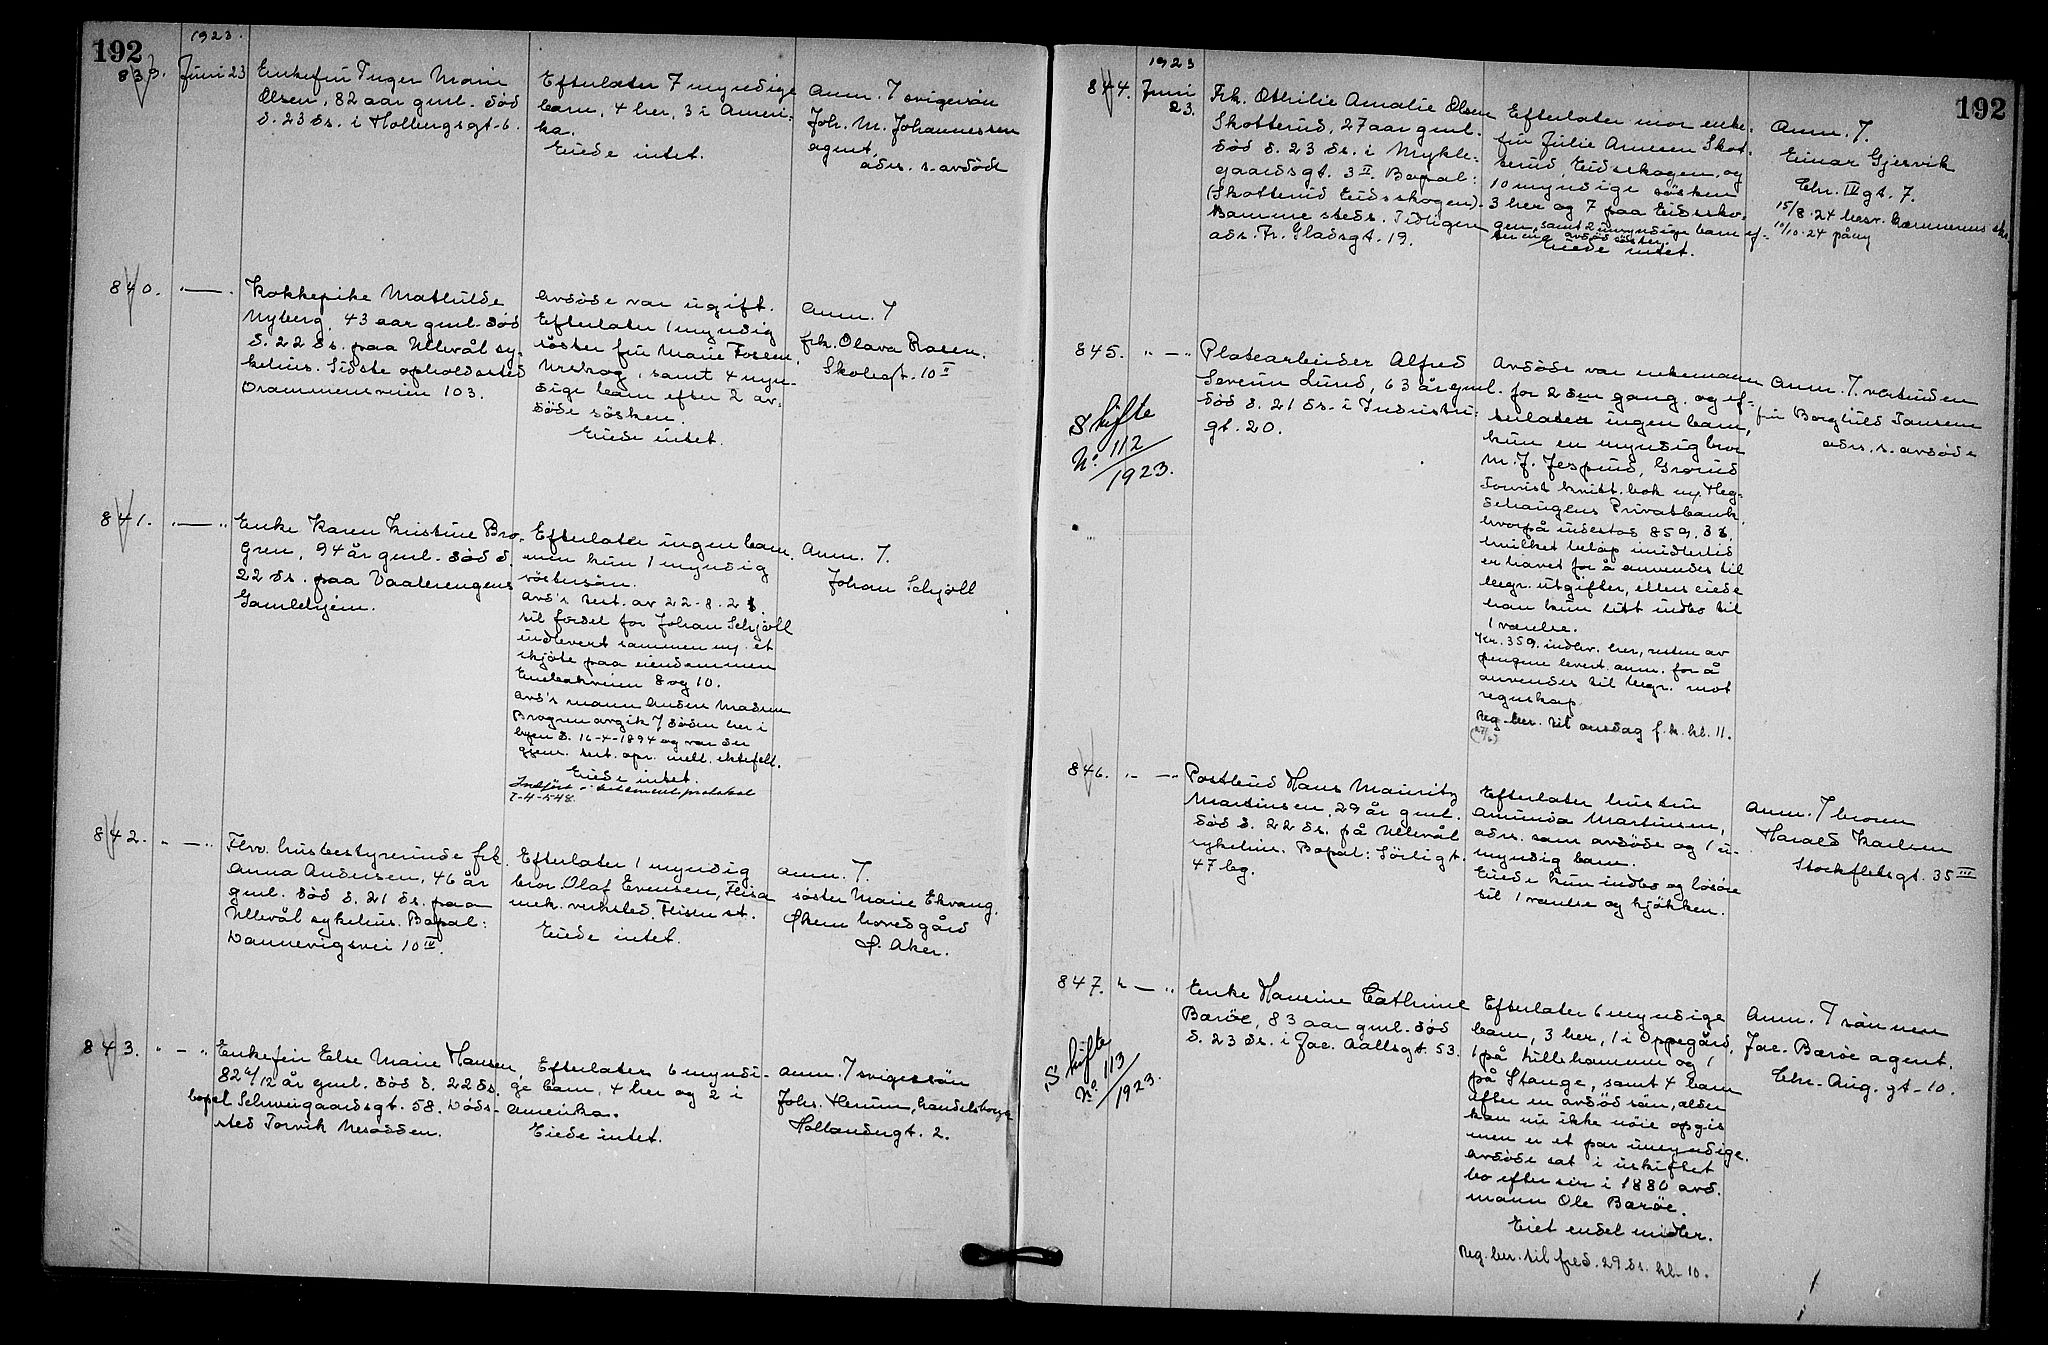 192
1923.
839. Juni 23
Enkefru Inger Marie
Olsen, 82 aar gml. død
d. 23 ds. i Holbergsgt. 6.
Efterlater 7 myndige
barn, 4 her, 3 i Ameri-
ka.
Eiede intet.
Anm. 7 svigersøn
Joh. M. Johannessen
agent,
adrs. s. avdøde
840. " — "
Kokkepike Mathilde
Nyberg, 43 aar gml. død
d. 22 ds. paa Ullevål sy-
kehus. Sidste opholdssted
Drammensveien 103.
Avdøde var ugift.
Efterlater 1 myndig
søster fru Marie Fossen,
Urskog, samt 4 myn-
dige barn efter 2 av-
døde søsken.
Eiede intet.
Anm. 7
frk. Olava Rasen.
Skolegt. 10 II
841. " — "
Enke Karen Kristine Bro-
gren, 94 år gml. død d.
22 ds. paa Vaalerengens
Gamlehjem.
Efterlater ingen barn
men kun 1 myndig
søstersøn.
Avd's test. av 22-8-21
til fordel for Johan Schjøll
indlevert sammen m. et
skjøte paa eiendommen
Enebakveien 8 og 10.
Avd's mann Anders Madsen
Brogren avgik 7 døden her i
byen d. 16-4-1894 og var der
gjens. test. opr. mell. ektefell.
Eiede intet.
Indført i testamentprotokol
7-4-548
Anm. 7.
Johan Schjøll
842. " — "
Fhv. husbestyrerinde frk.
Anna Andersen, 46 år
gml. død d. 21 ds. paa
Ullevål sykehus. Bopæl:
Dannevigsvei 10 IV.
Efterlater 1 myndig
bror Olaf Evensen, Flisa
mek. verksted, Flisen st.
Eiede intet.
Anm. 7.
søster Marie Ekvang.
Økern hovedgård
Ø. Aker.
843. " — "
Enkefru Else Marie Hansen,
82 4/12 år gml. død d. 22 ds.
bopæl Schweigaardsgt. 58. Døds-
sted Torvik Nesodden.
Efterlater 6 myndi-
ge barn, 4 her og 2 i
Amerika.
Eiede intet.
Anm. 7 svigersøn
Johs. Herum, handelsborger
Hollendergt. 2.
1923
192
844. Juni
23.
Frk. Othilie Amalie Olsen
Skotterud, 27 aar gml.
død d. 23 ds. i Mykle-
gaardsgt. 3 II. Bopæl:
(Skotterud Eidsskogen).
samme steds. Tidligere
adr. Fr. Gladsgt. 19.
Efterlater mor enke-
fru Julie Amesen Skot-
terud, Eidsskogen, og
10 myndige søsken
3 her og 7 paa Eidssko-
gen, samt 2 umyndige barn ef-
ter en avdød søster.
Eiede intet.
Anm. 7.
Einar Gjersvik
Chr. IV gt. 7.
15/8-24 besv. kæmnerens skr.
10/10-24 påny
845. " — "
Skifte
No. 112/1923.
Platearbeider Alfred
Severin Lund, 63 år gml.
død d. 21 ds. i Industri-
gt. 20.
Avdøde var enkemann
for 2 den gang. og ef-
terlater ingen barn,
kun en myndig bror
M. J. Jesprud, Grorud
Forvist kvitt. bok m. Heg-
dehaugens Privatbank
hvorpå indestod 859.38,
hvilket beløp imidlertid
er hævet for å anvendes til
begr. utgifter, ellers eiede
han kun litt indbo til
1 værelse.
Kr. 359. indlev. her, resten av
pengene levert anm. for å
anvendes til begr. mot
regnskap.
Reg. ber. til onsdag f. k. kl. 11.
(27/6)
Anm. 7. vertinden
fru Borghild Jansen
adrs. s. avdøde
846. " — "
Postbud Hans Mauritz
Martinsen, 29 år gml.
død d. 22 ds. på Ullevål
sykehus. Bopæl: Sörligt.
47 bg.
Efterlater hustru
Amunda Martinsen,
adrs. som avdøde og 1 u-
myndig barn.
Eiede kun indbo og løsøre
til 1 værelse og kjøkken.
Anm. 7 broren
Harald Karlsen
Stockfletsgt. 35 III
847. " — "
Skifte
No. 113/1923.
Enke Hansine Cathrine
Barøe, 83 aar gml. død
d. 23 ds. i Jac. Aallsgt. 53.
Efterlater 6 myndige
barn, 3 her, 1 i Oppegård,
1 på Lillehammer og 1
på Stange, samt 4 barn
efter en avdød søn, alder
kan nu ikke nøie opgis
men er et par umyndige.
Avdøde sat i uskiftet
bo efter sin i 1880 avd.
mann Ole Barøe.
Eiet endel midler.
Reg. ber. til fred. 29 ds. kl. 10.
Anm. 7 sönnen
Jac. Barøe agent.
Chr. Aug. gt. 10.